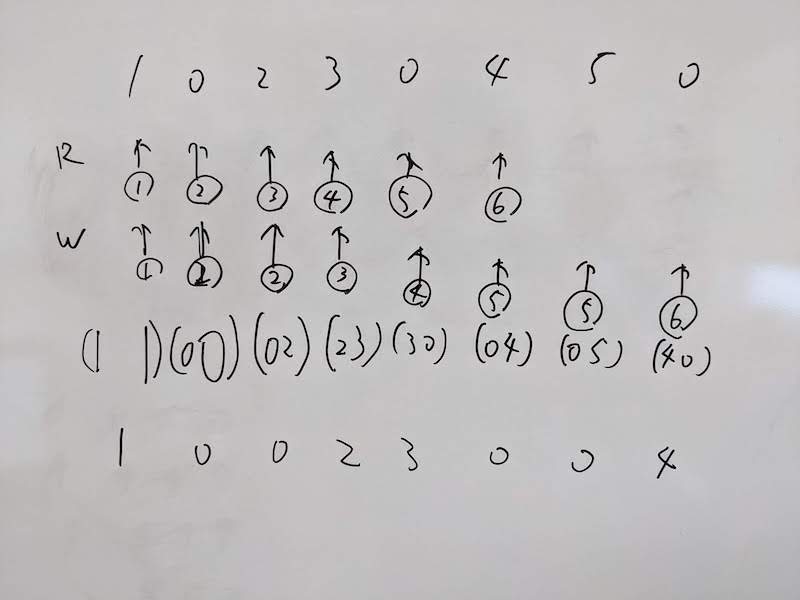 1 0 2 3 0 4 5 0
R ↑ ↑ ↑ ↑ ↑ ↑
① ② ③ ④ ⑤ ⑥
W ↑ ↑ ↑ ↑ ↑ ↑ ↑ ↑
① ② ② ③ ④ ⑤ ⑤ ⑥
(1 1) (00) (02) (23) (30) (04) (05) (40)
1 0 0 2 3 0 0 4